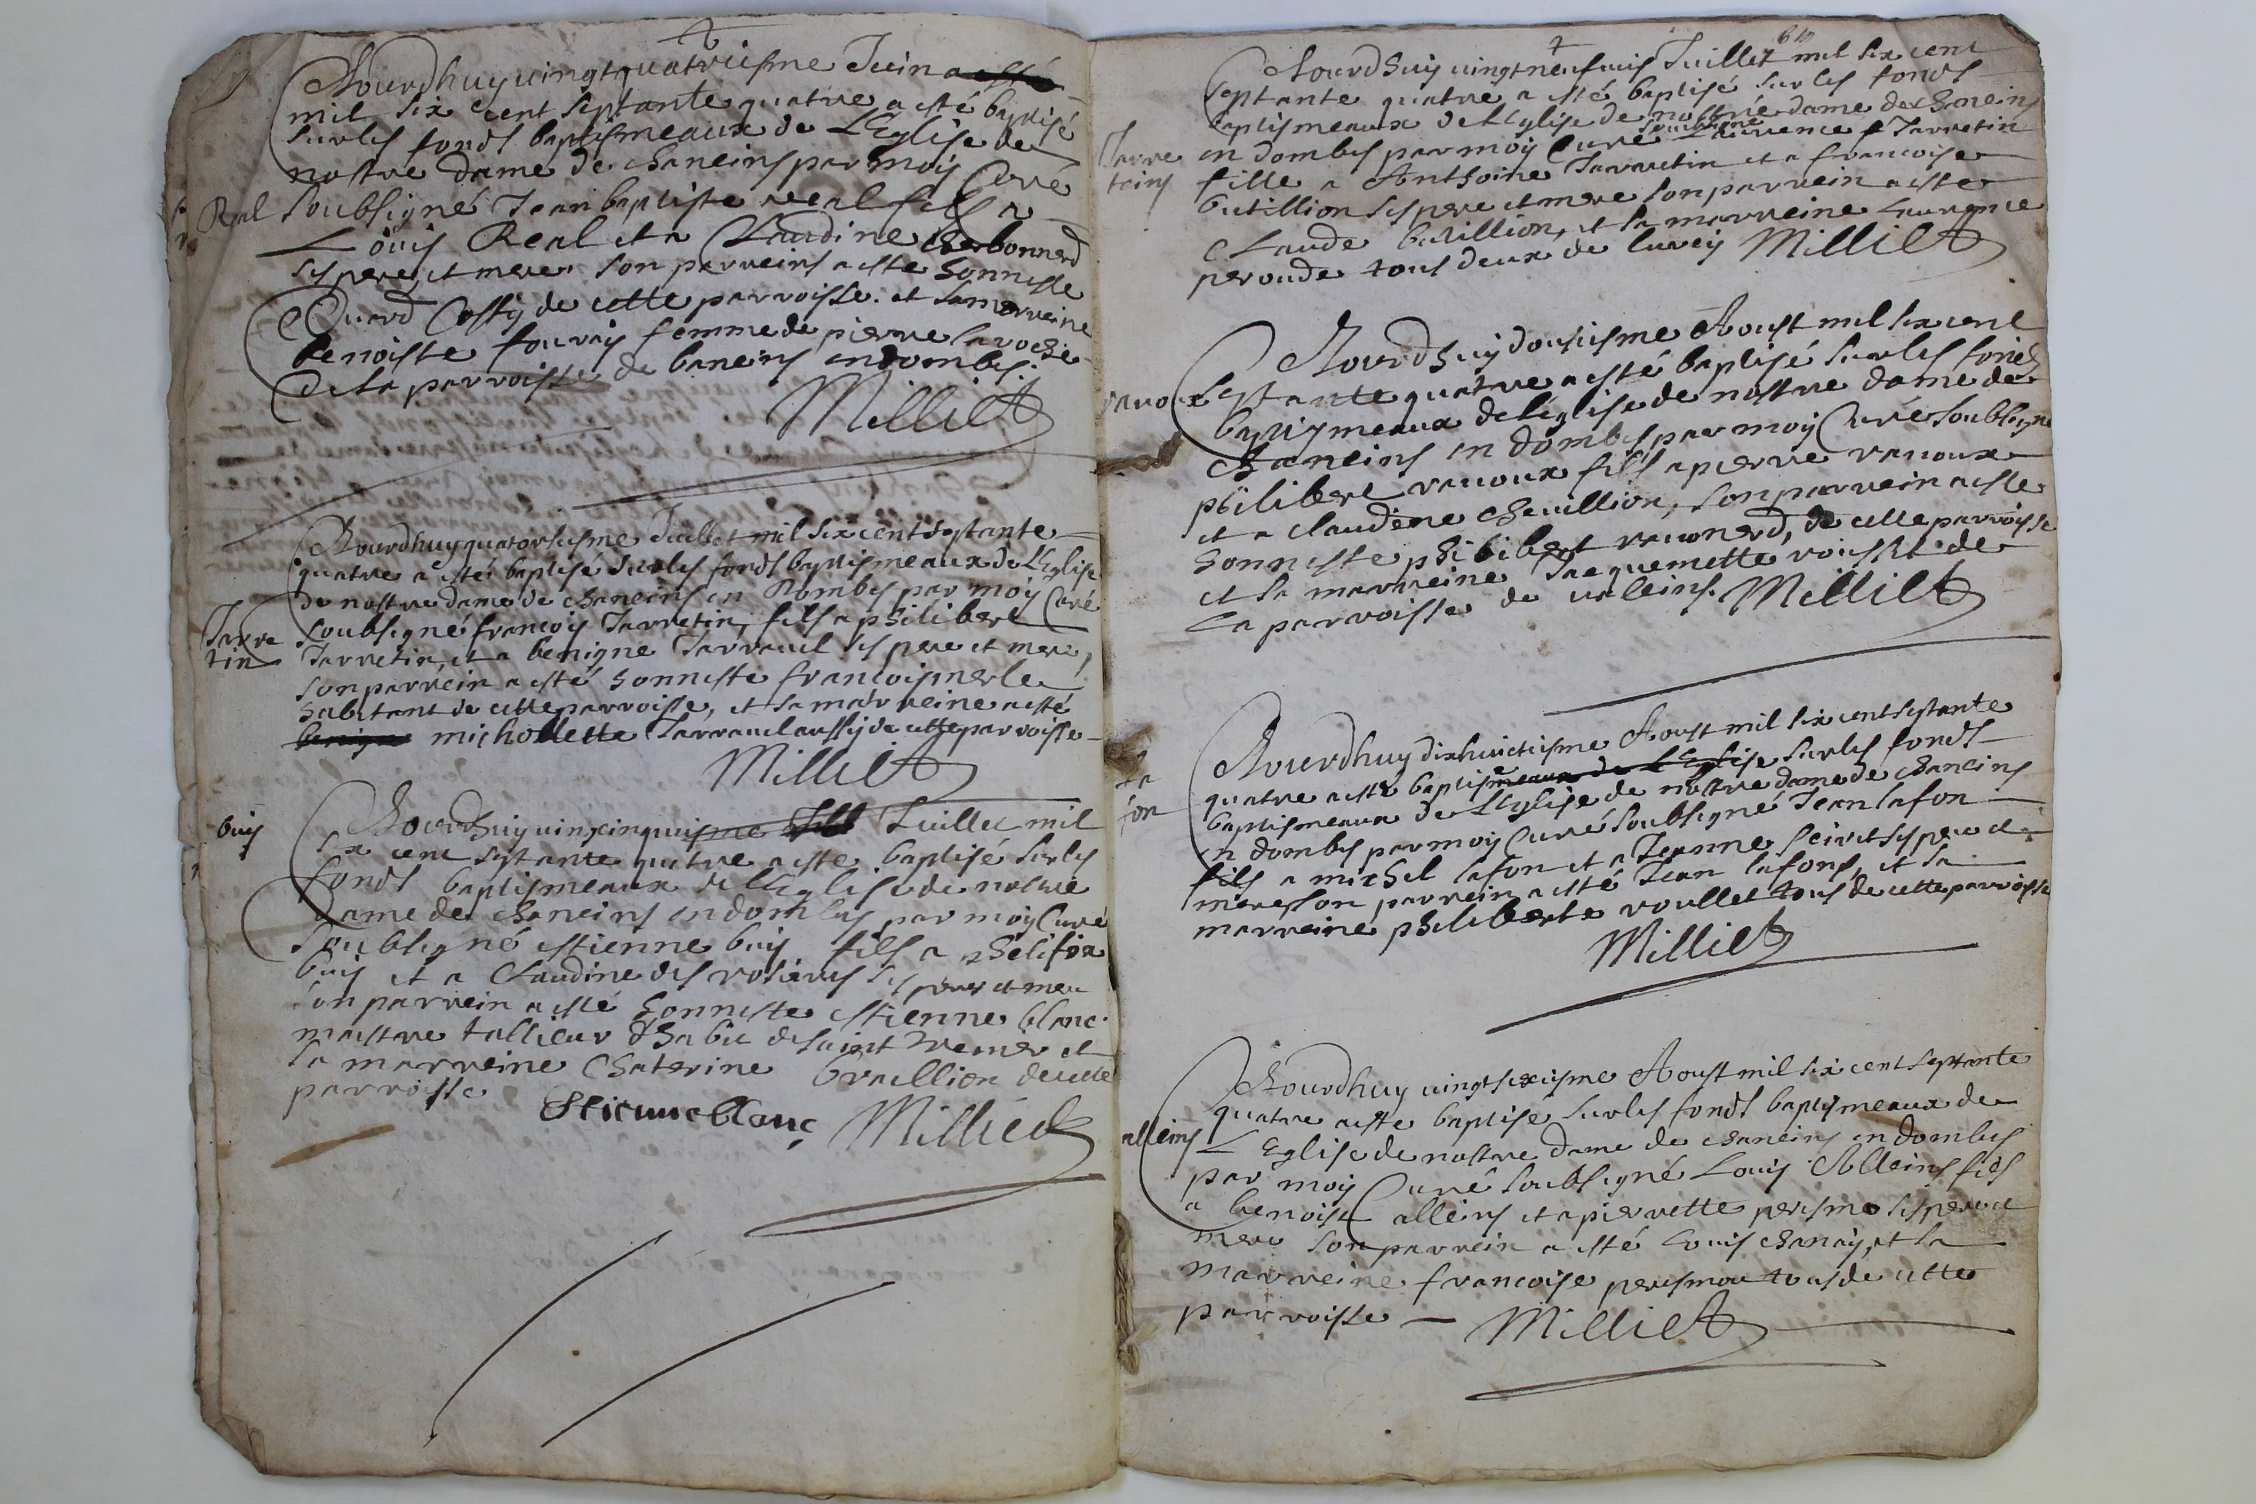 Aourdhuy uingtquatriesme Juin
mil six cent septante quatre a esté baptisé
sur les fonds baptismeaux de L'Eglise de
nostre dame de chaneins par moy Curé
Real
soubsigné Jean baptiste real fils a
Loüis Real et a Claudine
ses pere et mere, son parrein a esté honneste
de cette parroisse. et sa marreine
benoiste fouray femme de pierre laroche
de la parroisse de baneins en dombes.
Milliet
Aourdhuy quatorsiesme Juillet mil six cent septante
quatre a esté baptisé sur les fonds baptismeaux de L'Eglise
de nostre dame de chaneins en Dombes par moy Curé
Jarre
tin
soubsigné francois Jarretin, fils a philibert
Jarretin, et a benigne Jarrauel ses pere et mere,
son parrein a esté honneste francois merle
habitant de cette parroisse, et sa marreine a esté
michollette Jarrauel aussy de cette parroisse
Milliet
buy
Aourdhuy uintcinquiesme Juillet mil
six cent septante quatre a esté baptisé sur les
fonds baptismeaux de l'Eglise de nostre
dame de chaneins en dombes par moy Curé
soubsigné estienne buy fils a
buy et a Claudine des rosieres ses pere et mere
son parrein a esté honneste estienne blanc
maistre tallieur d'habit de saint et
sa marreine Chaterine braillion de cette
parroisse
Estienne blanc Milliet
Aourdhuy uingtneufuies Juillet mil six cent
septante quatre a esté baptisé sur les fonds
baptismeaux de L'Eglise de nostre dame de chaneins
soubsigné
Jarre
teins
en dombes par moy Curé Laurence Jarretin
fille a Anthoine Jarretin et a francoise
butillion ses pere et mere son parrein a esté
Claude butillion, et sa marreine Laurence
peroude tous deux de lurcy Milliet
Aourdhuy dousiesme Aoust mil six cent
rauoux
septante quatre a esté baptisé sur les fonds
baptismeaux de l'église de nostre dame de
chaneins en dombes par moy Curé soubsigné
philibert rauoux fils a pierre rauoux
et a claudine cheuillion, son parrein a esté
honneste philibert, de cette parroisse
et sa marreine Jacquemette roisset de
la parroisse de ualeins. Milliet
Aourdhuy dixhuictiesme Aoust mil six cent septante
quatre a esté baptisé sur les fonds
baptismeaux de L'Eglise de nostre dame de chaneins
la
fon
en dombes par moy Curé soubsigné Jean lafon
fils a michel lafon et a Jeanne ses pere et
mere son parrein a esté Jean lafons, et sa
marreine philiberte roullet tous de cette parroisse
Milliet
Aourdhuy uingtsixiesme Aoust mil six cent septante
quatre a esté baptisé sur les fonds baptismeaux de
alleins
L'Eglise de nostre dame de chaneins en dombes
par moy Curé soubsigné Louis Alleins fils
a benoist alleins et a pierrette ses pere et
mere son parrein a esté Louis chanay, et la
marreine francoise perismou tous de cette
parroisse Milliet